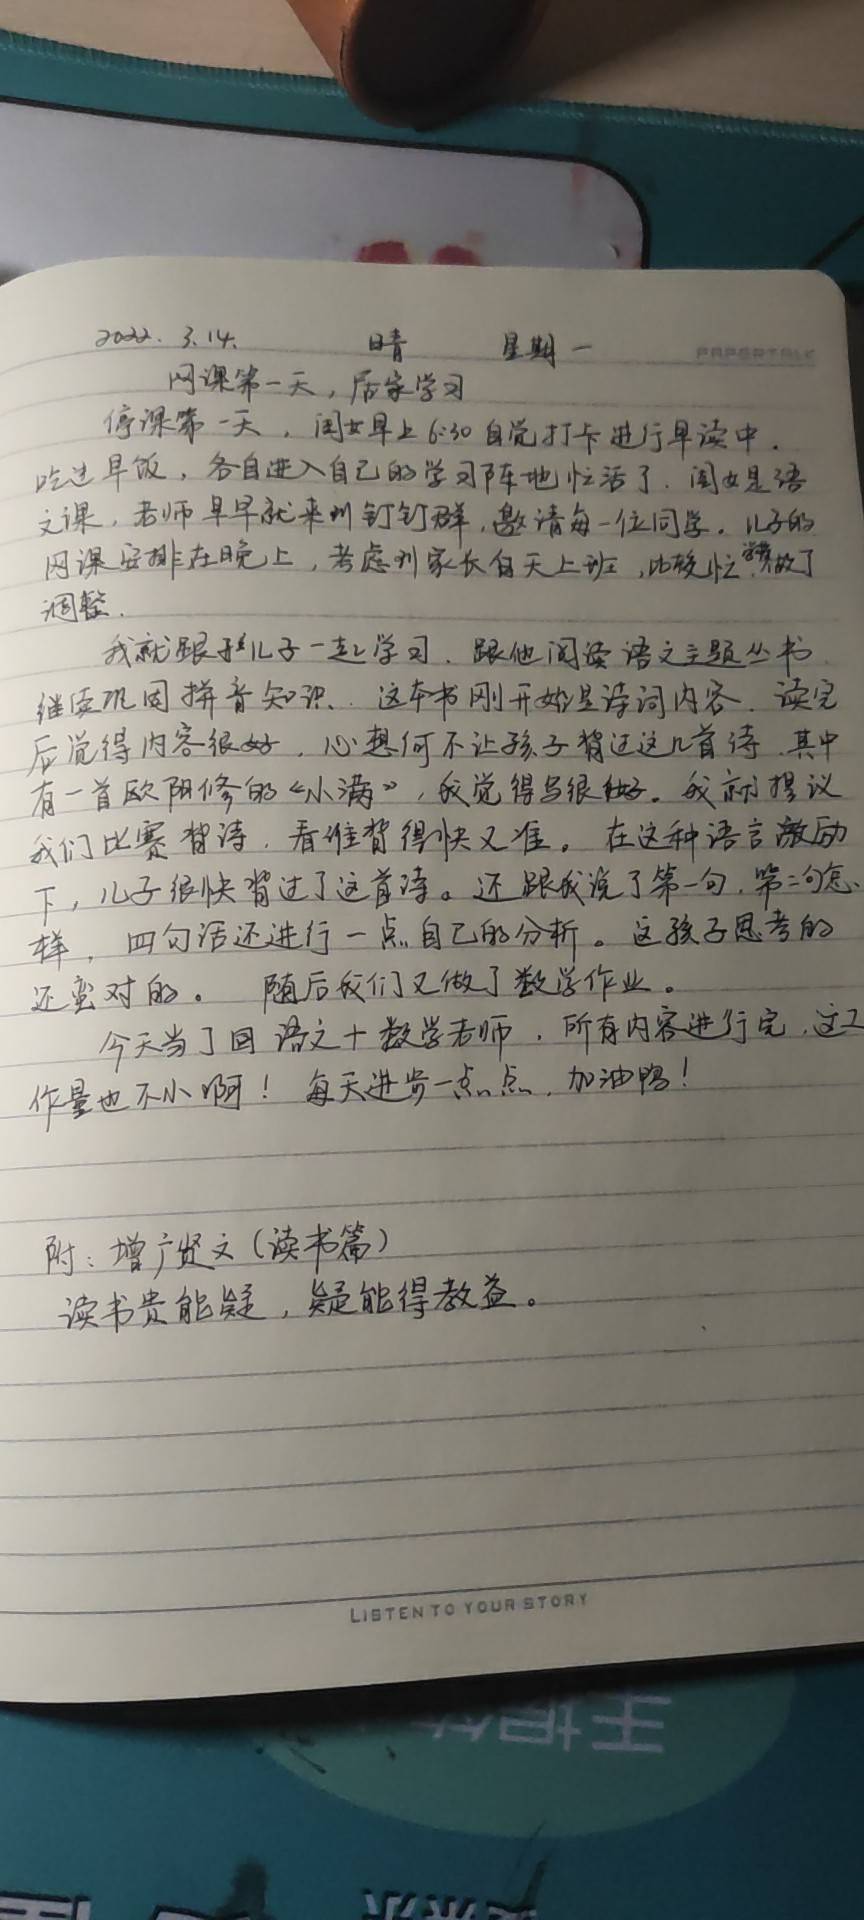 2022. 3.14. 晴 星期一
PAPERTALK
网课第一天，居家学习
停课第一天，闺女早上6:30自觉打卡进行早读中.
吃过早饭，各自进入自己的学习阵地忙活了.闺女是语
文课，老师早早就来到钉钉群，邀请每一位同学。儿子的
网课安排在晚上，考虑到家长白天上班，比较忙做了
调整.
我就跟儿子一起学习.跟他阅读语文主题丛书
继续巩固拼音知识.这本书刚开始是诗词内容.读完
后觉得内容很好，心想何不让孩子背过这几首诗.其中
有一首欧阳修的《小满》，我觉得写很好。我就提议
我们比赛背诗.看谁背得快又准。在这种语言激励
下，儿子很快背过了这首诗。还跟我说了第一句.第二句怎
样，四句话还进行一点自己的分析。这孩子思考的
还蛮对的。随后我们又做了数学作业。
今天当了回语文+数学老师，所有内容进行完，这工
作量也不小啊！每天进步一点点，加油鸭！
附：增广贤文（读书篇）
读书贵能疑，疑能得教益。
LISTEN TO YOUR STORY